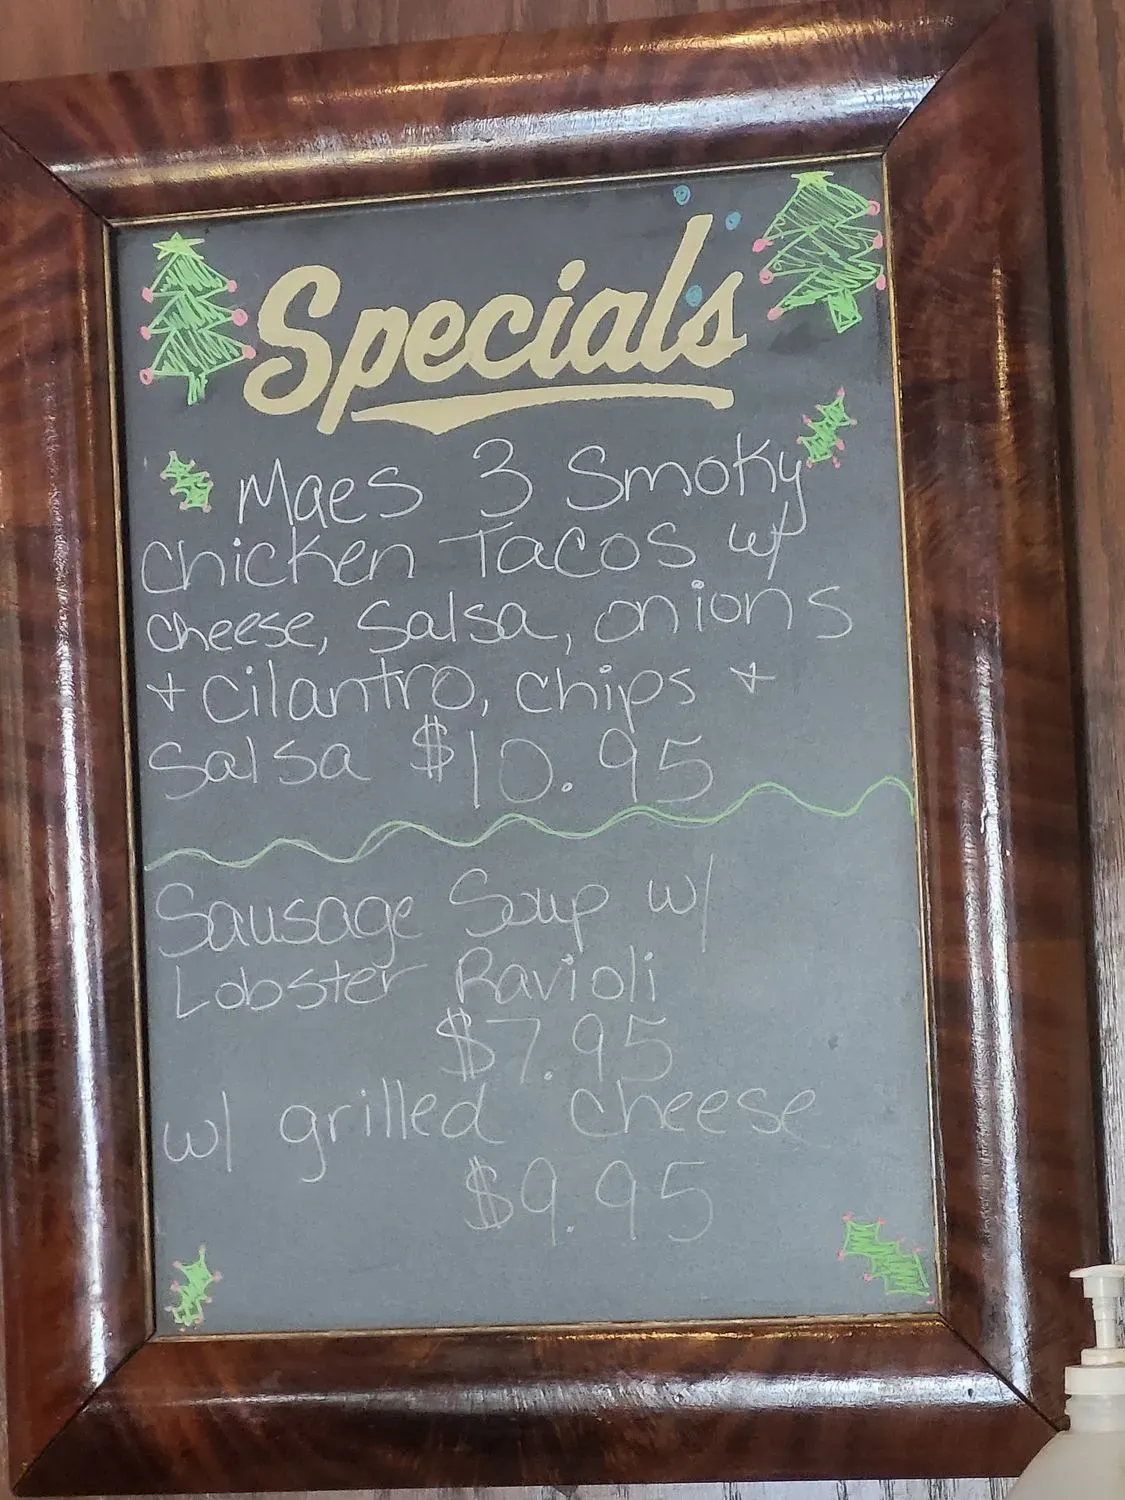 Specials
Maes 3 Smoky
chicken Tacos w/
cheese, salsa, onions
+ cilantro, chips +
Salsa $10.95
Sausage Soup w/
Lobster Ravioli
$7.95
w/ grilled cheese
$9.95